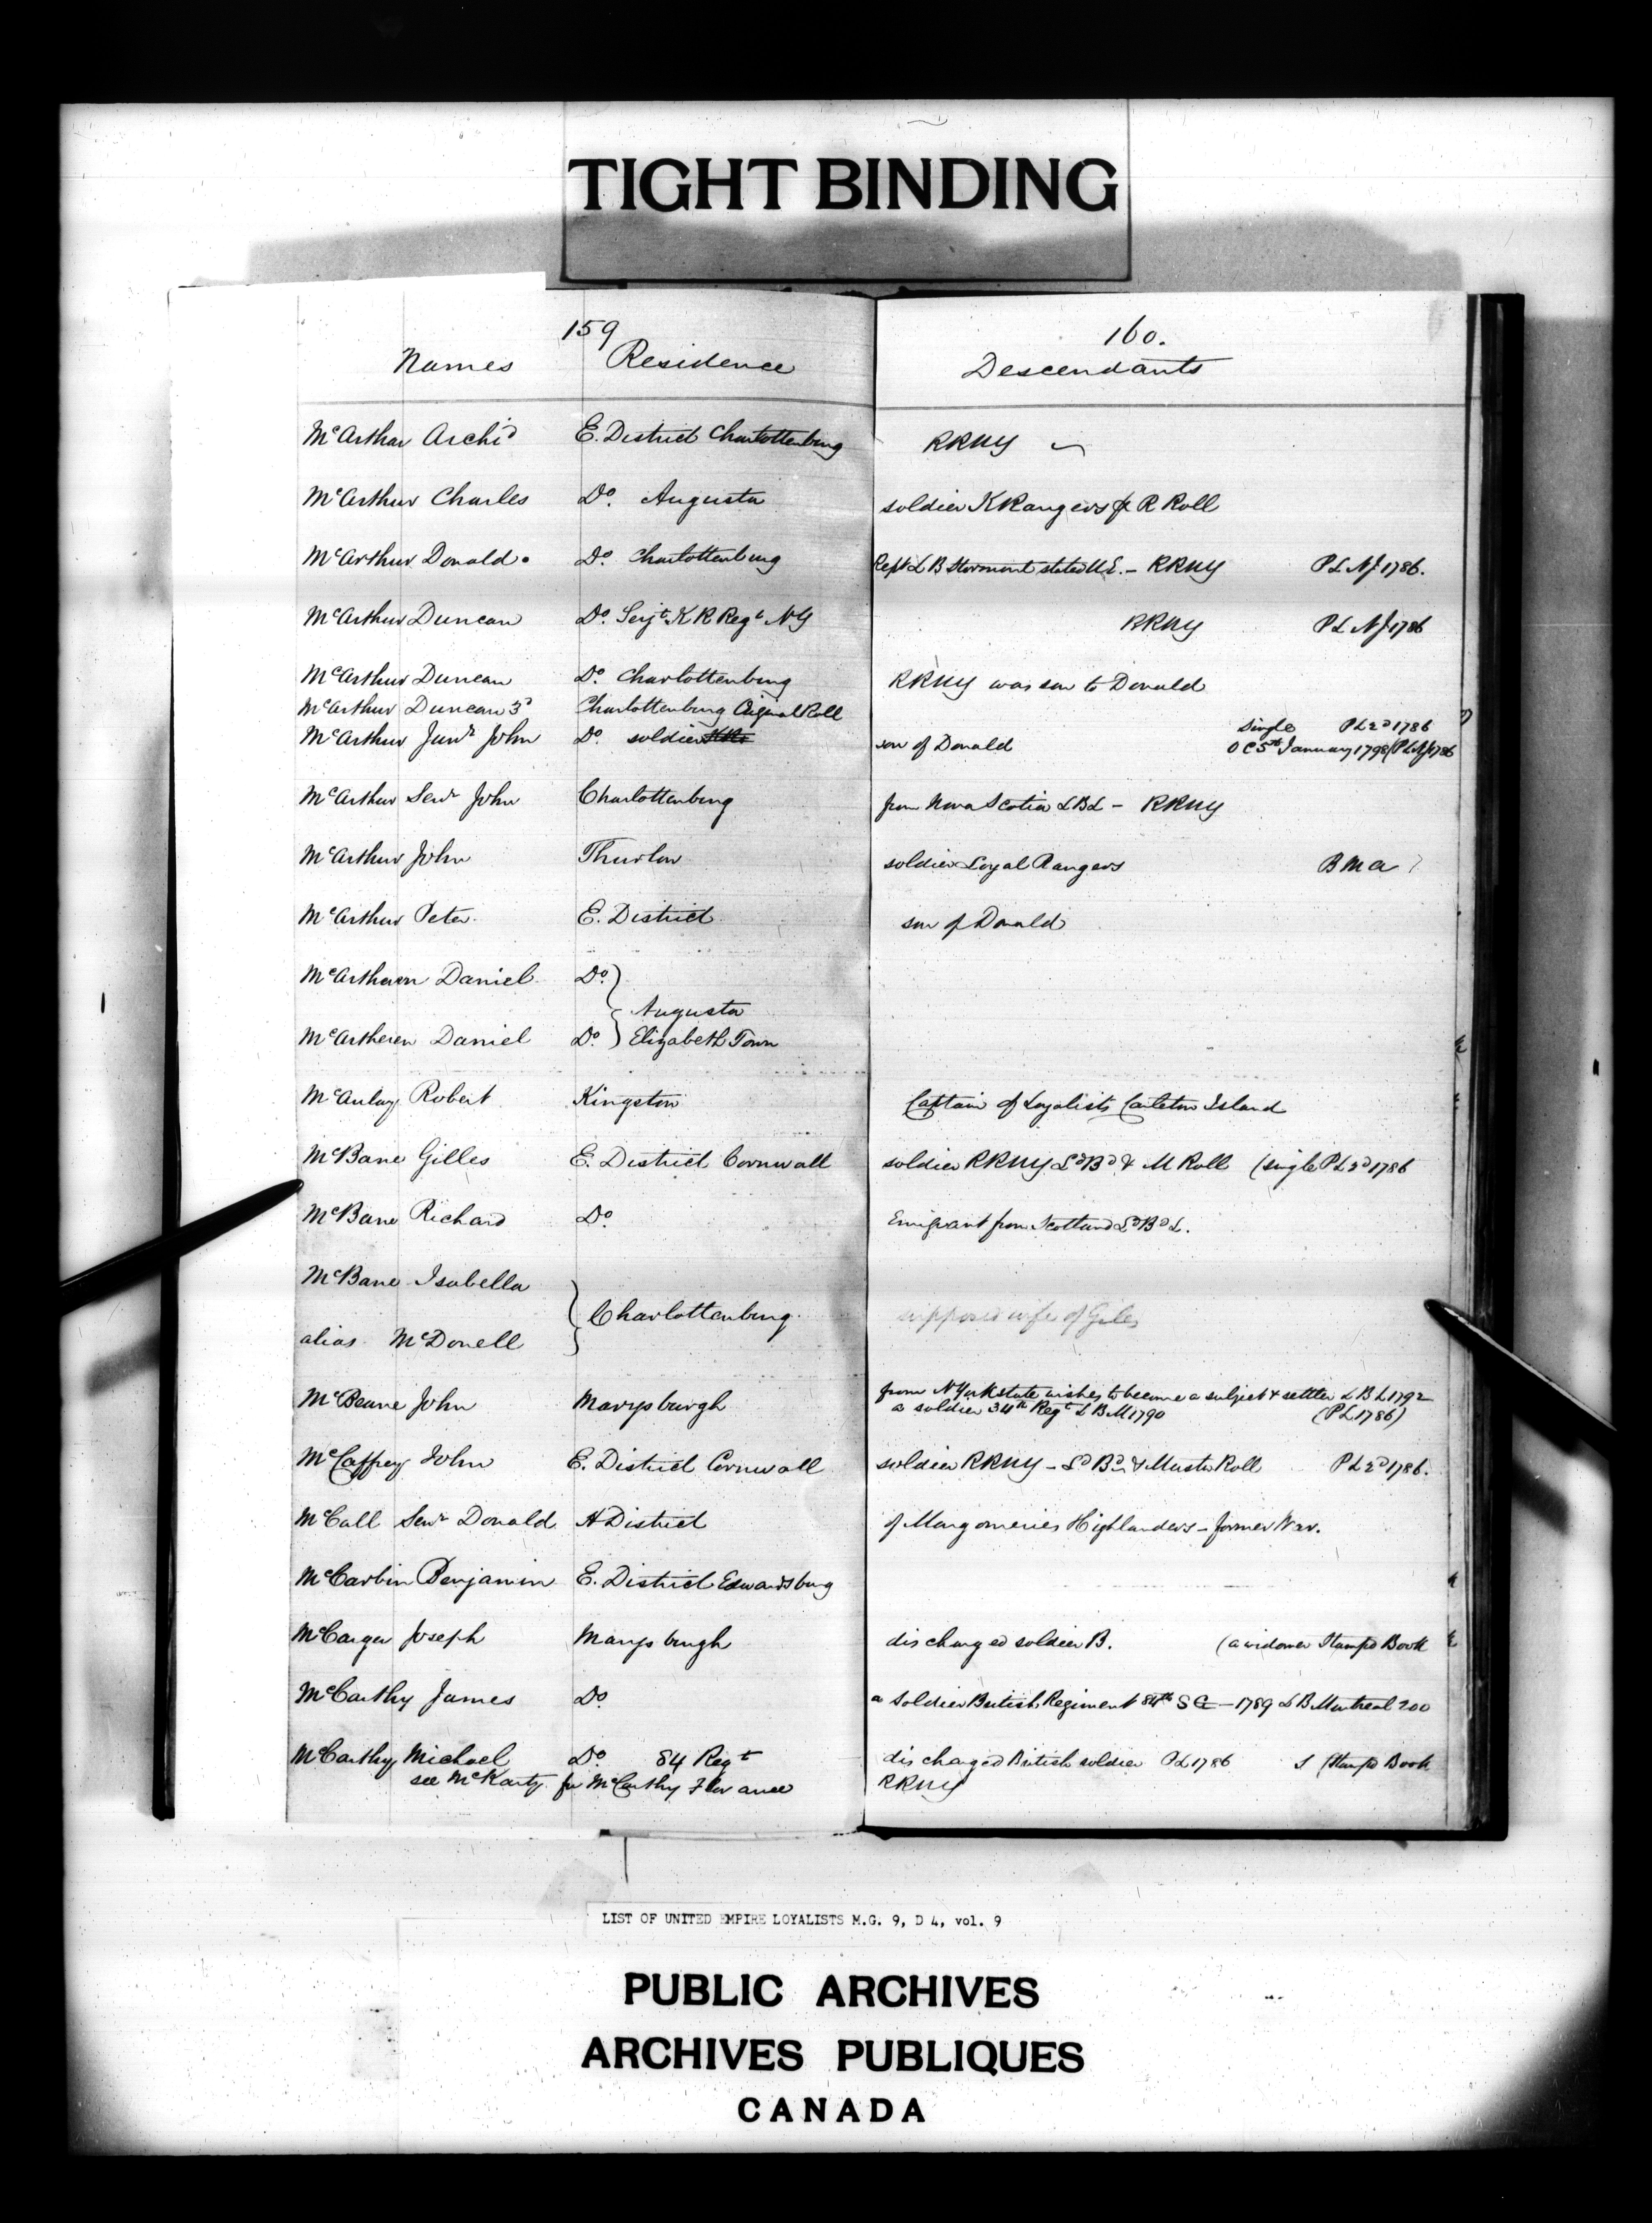 TIGHT BINDING
159
160.
Names Residence Descendants
McArthur Archd E. District Charlottenburg RRNY
McArthur Charles Do. Augusta soldier K Rangers & R Roll
McArthur Donald Do. Charlottenburg Rept L B Stormont stated U.E. - RRNY PL NJ 1786.
McArthur Duncan Do. Serjt K R Regt NY RRNY PL NJ 1786
McArthur Duncan Do. Charlottenburg RRNY was son to Donald
McArthur Duncan 3d Charlottenburg Original Roll single PL 2d 1786
McArthur Junr John Do. soldier son of Donald OC 5th January 1798 (PL NJ 1786
McArthur Senr John Charlottenburg from Nova Scotia LBL - RRNY
McArthur John Thurlow soldier Loyal Rangers BMa
McArthur Peter E. District son of Donald
McArtheron Daniel Do.
Augusta
McArtheren Daniel Do. Elizabeth Town
McAulay Robert Kingston Captain of Loyalists Carleton Island
McBane Gilles E. District Cornwall soldier RRNY Ld Bd & M Roll (single PL 2d 1786
McBane Richard Do. Emigrant from Scotland Ld Bd L.
McBane Isabella
Charlottenburg supposed wife of Giles
alias McDonell
McBeane John Marysburgh from N York state wishes to become a subject & settler L B L 1792
a soldier 34th Regt L B M 1790 (PL 1786)
McCaffrey John E. District Cornwall soldier RRNY - Ld Bd & Muster Roll PL 2d 1786.
McCall Senr Donald H District of Mongomeries Highlanders - former War.
McCarbin Benjamin E. District Edwardsburg
McCarger Joseph Marysburgh discharged soldier B. (a widower Stampd Book
McCarthy James Do a soldier British Regiment 84th SG - 1789 L B Montreal 200
McCarthy Michael Do 84 Regt discharged British soldier PL 1786 S (Stampd Book
see McKarty for McCarthy Florance RRNY
LIST OF UNITED EMPIRE LOYALISTS M.G. 9, D 4, vol. 9
PUBLIC ARCHIVES
ARCHIVES PUBLIQUES
CANADA